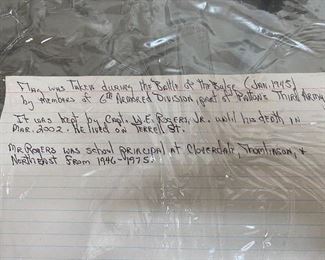 Flag was Taken during the Battle of the Bulge (Jan. 1945)
by members of 6th Armored Division, part of Pattons Third Army
It was kept by Capt. W.E. Rogers, Jr. until his death in
Mar. 2002. He lived on Terrell St.
Mr. Rogers was school principal at Cloverdale, Thomlinson, &
Northeast from 1946-1975.